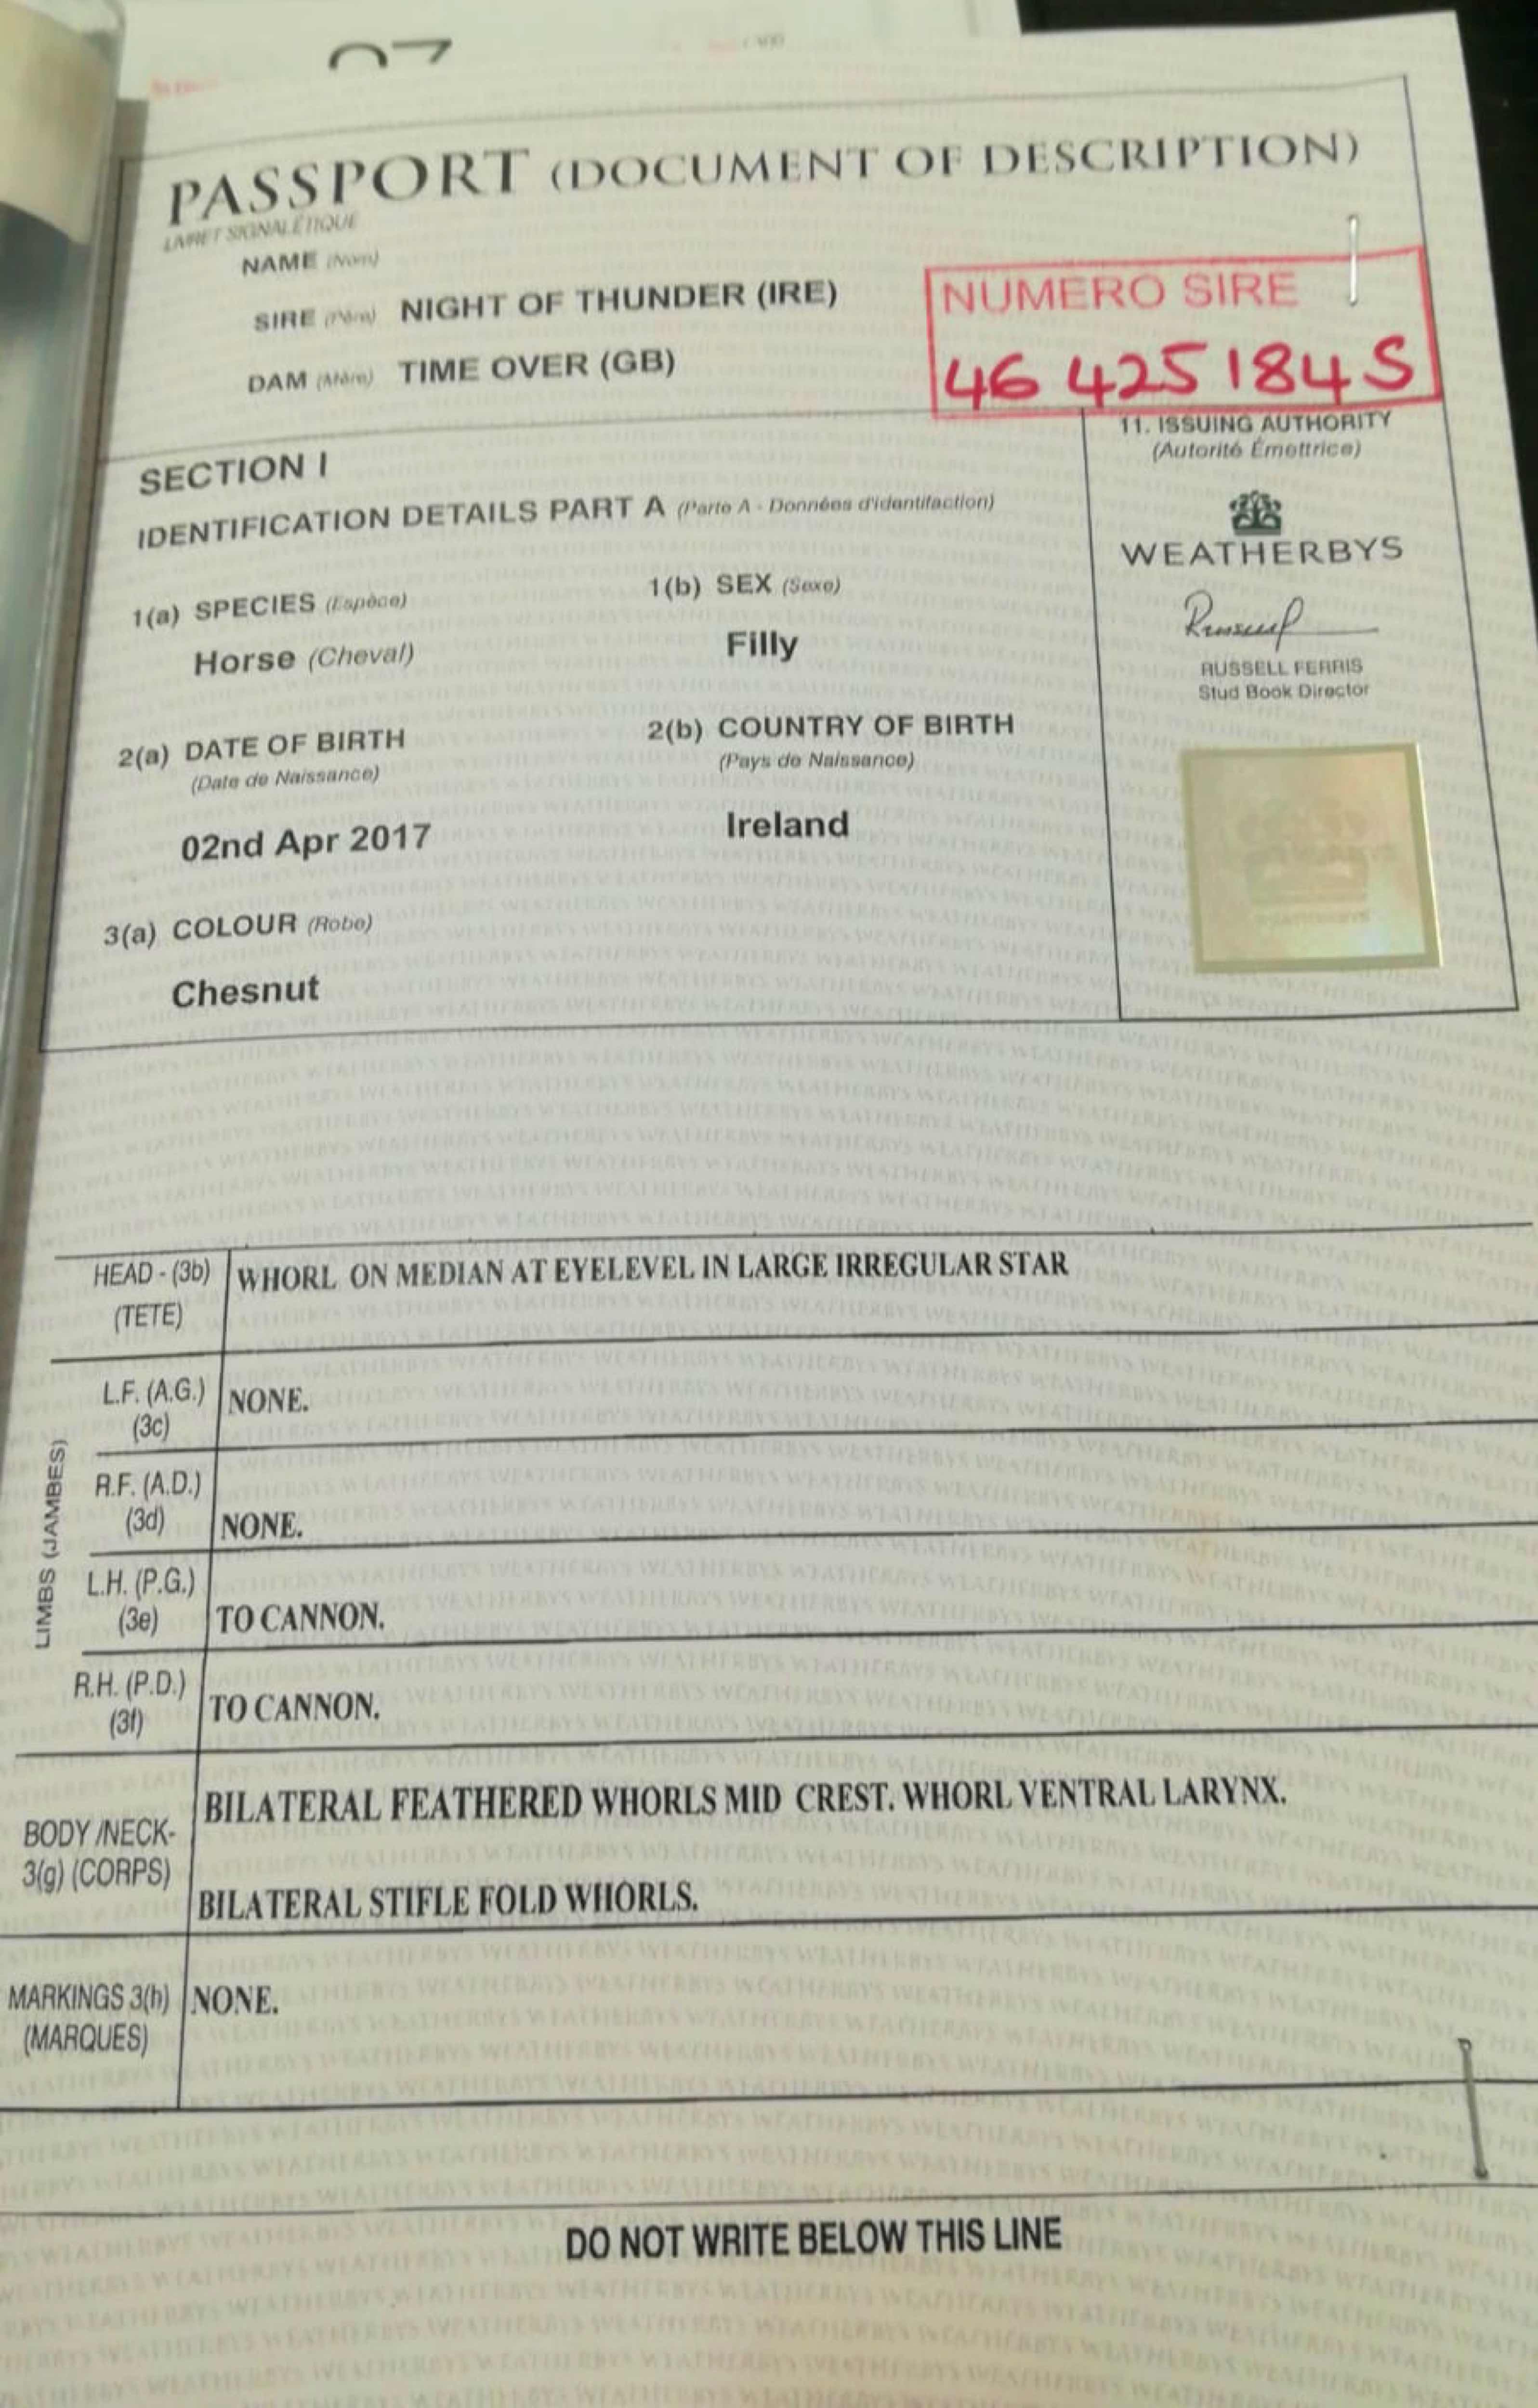 PASSPORT (DOCUMENT OF DESCRIPTION)
LIVRET SIGNALÉTIQUE
NAME (Nom)
SIRE (Père) NIGHT OF THUNDER (IRE)
DAM (Mère) TIME OVER (GB)
NUMERO SIRE
46 425 184 S
SECTION I
IDENTIFICATION DETAILS PART A (Parte A - Données d'identifaction)
11. ISSUING AUTHORITY
(Autorité Émettrice)
WEATHERBYS
RUSSELL FERRIS
Stud Book Director
1(a) SPECIES (Espèce)
Horse (Cheval)
1(b) SEX (Sexe)
Filly
2(a) DATE OF BIRTH
(Date de Naissance)
02nd Apr 2017
2(b) COUNTRY OF BIRTH
(Pays de Naissance)
Ireland
3(a) COLOUR (Robe)
Chesnut
HEAD - (3b)
(TETE)
WHORL ON MEDIAN AT EYELEVEL IN LARGE IRREGULAR STAR
LIMBS (JAMBES)
L.F. (A.G.)
(3c)
NONE.
R.F. (A.D.)
(3d)
NONE.
L.H. (P.G.)
(3e)
TO CANNON.
R.H. (P.D.)
(3f)
TO CANNON.
BODY /NECK-
3(g) (CORPS)
BILATERAL FEATHERED WHORLS MID CREST. WHORL VENTRAL LARYNX.
BILATERAL STIFLE FOLD WHORLS.
MARKINGS 3(h)
(MARQUES)
NONE.
DO NOT WRITE BELOW THIS LINE